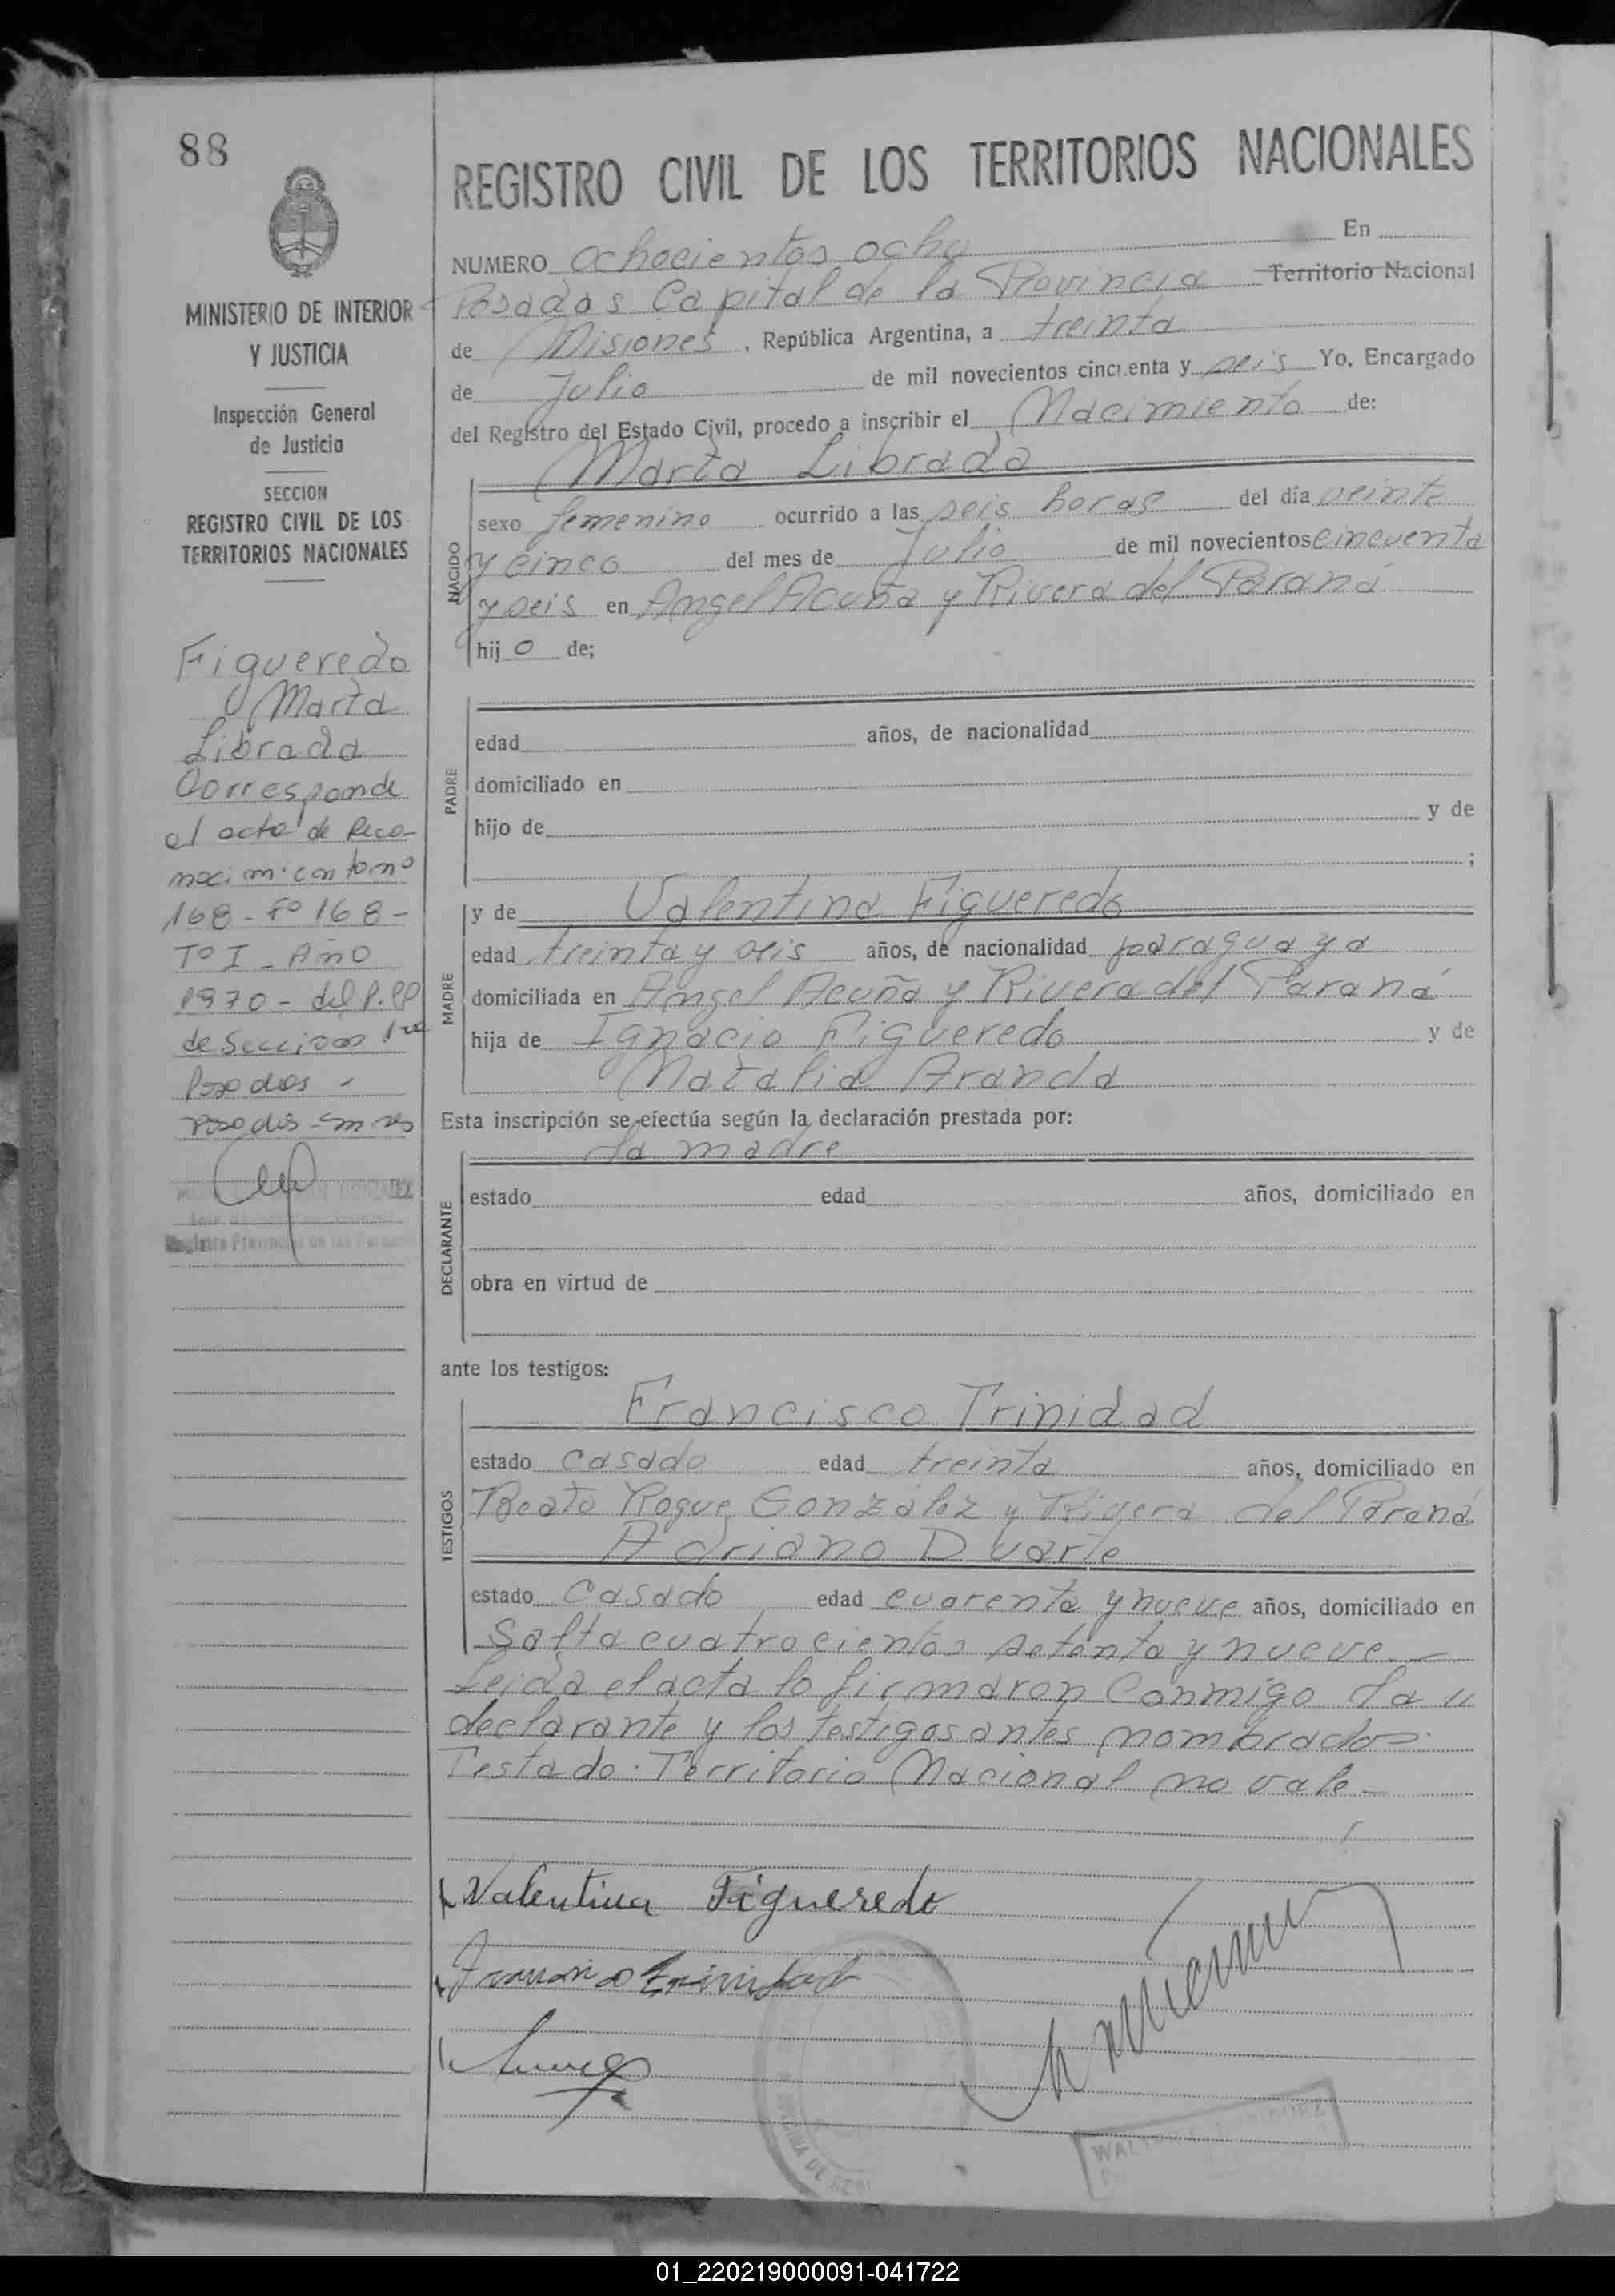 88
MINISTERIO DE INTERIOR
Y JUSTICIA
Inspección General
de Justicia
SECCION
REGISTRO CIVIL DE LOS
TERRITORIOS NACIONALES
Figueredo
Marta
Librada
Corresponde
al acta de Reco-
nocimiento nº
168 - Fº 168 -
Tº I - Año
1970 - del R.PP
de Seccion 1ra
Posadas -
REGISTRO CIVIL DE LOS TERRITORIOS NACIONALES
NUMERO ochocientos ocho En
Posadas Capital de la Provincia Territorio Nacional
de Misiones, República Argentina, a treinta
de Julio de mil novecientos cincuenta y seis Yo, Encargado
del Registro del Estado Civil, procedo a inscribir el Nacimiento de:
Marta Librada
NACIDO
sexo femenino ocurrido a las seis horas del día veinte
y cinco del mes de Julio de mil novecientos cincuenta
y seis en Angel Acuña y Rivera del Paraná
hijo de;
PADRE
edad años, de nacionalidad
domiciliado en
hijo de y de
;
MADRE
y de Valentina Figueredo
edad treinta y seis años, de nacionalidad paraguaya
domiciliada en Angel Acuña y Rivera del Paraná
hija de Ignacio Figueredo y de
Natalia Aranda
Esta inscripción se efectúa según la declaración prestada por:
la madre
DECLARANTE
estado edad años, domiciliado en
obra en virtud de
ante los testigos:
TESTIGOS
Francisco Trinidad
estado casado edad treinta años, domiciliado en
Beato Roque González y Rivera del Paraná
Adriano Duarte
estado casado edad cuarenta y nueve años, domiciliado en
Salta cuatrocientos setenta y nueve
Leida el acta lo firmaron conmigo la
declarante y los testigos antes nombrados.
Testado: Territorio Nacional no vale
Valentina Figueredo
Francisco Trinidad
01_220219000091-041722